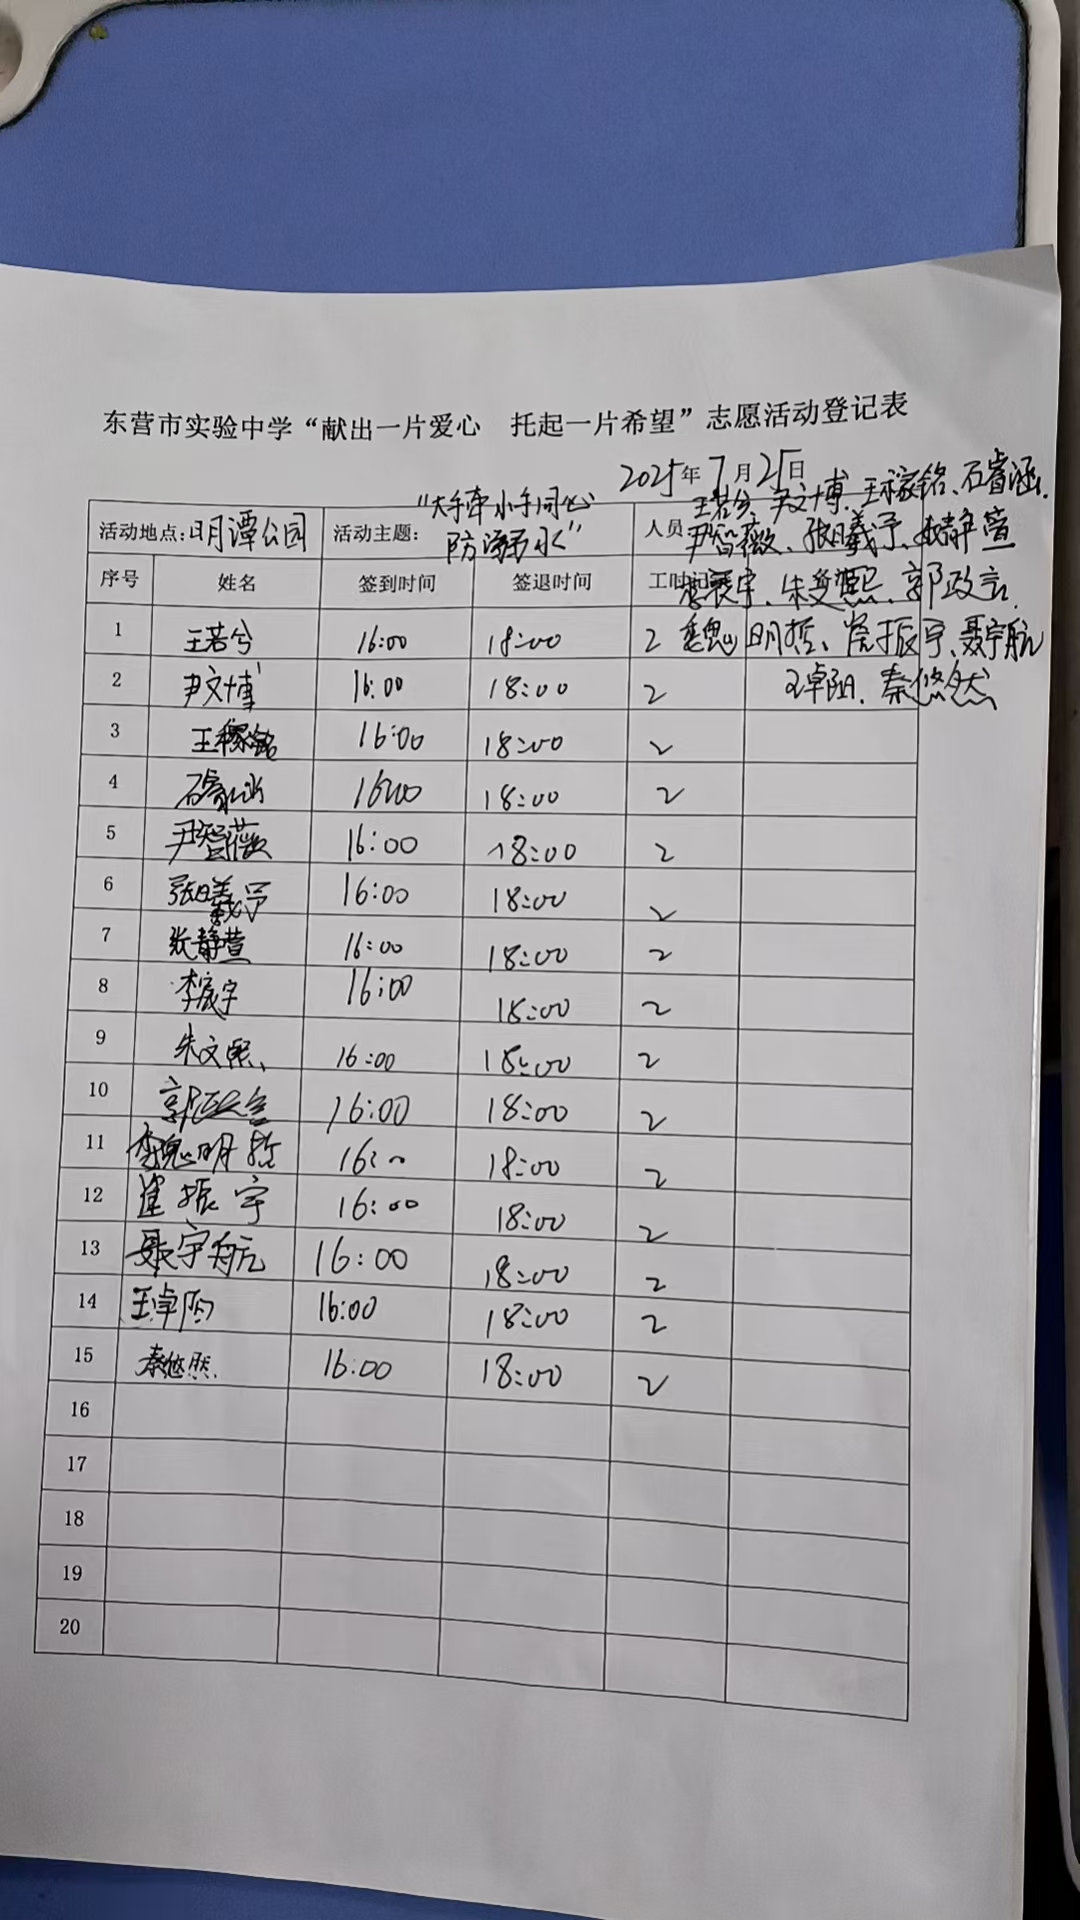 东营市实验中学“献出一片爱心 托起一片希望”志愿活动登记表
2025年7月25日
活动地点:明潭公园 活动主题:“大手牵小手同心防溺水” 人员 王若兮、尹文博、王稼铭、石睿涵、
尹智薇、张曦予、张静萱
李宸宇、朱文熙、郭政言、
魏明哲、崔振宇、聂宇航
王卓阳、秦悠然
序号 姓名 签到时间 签退时间 工时记
1 王若兮 16:00 18:00 2
2 尹文博 16:00 18:00 2
3 王稼铭 16:00 18:00 2
4 石睿涵 16:00 18:00 2
5 尹智薇 16:00 18:00 2
6 张曦予 16:00 18:00 2
7 张静萱 16:00 18:00 2
8 李宸宇 16:00 18:00 2
9 朱文熙 16:00 18:00 2
10 16:00 18:00 2
11 李魏明哲 18:00 2
12 崔振宇 16:00 18:00 2
13 聂宇航 16:00 18:00 2
14 王卓阳 16:00 18:00 2
15 秦悠然 16:00 18:00 2
16
17
18
19
20